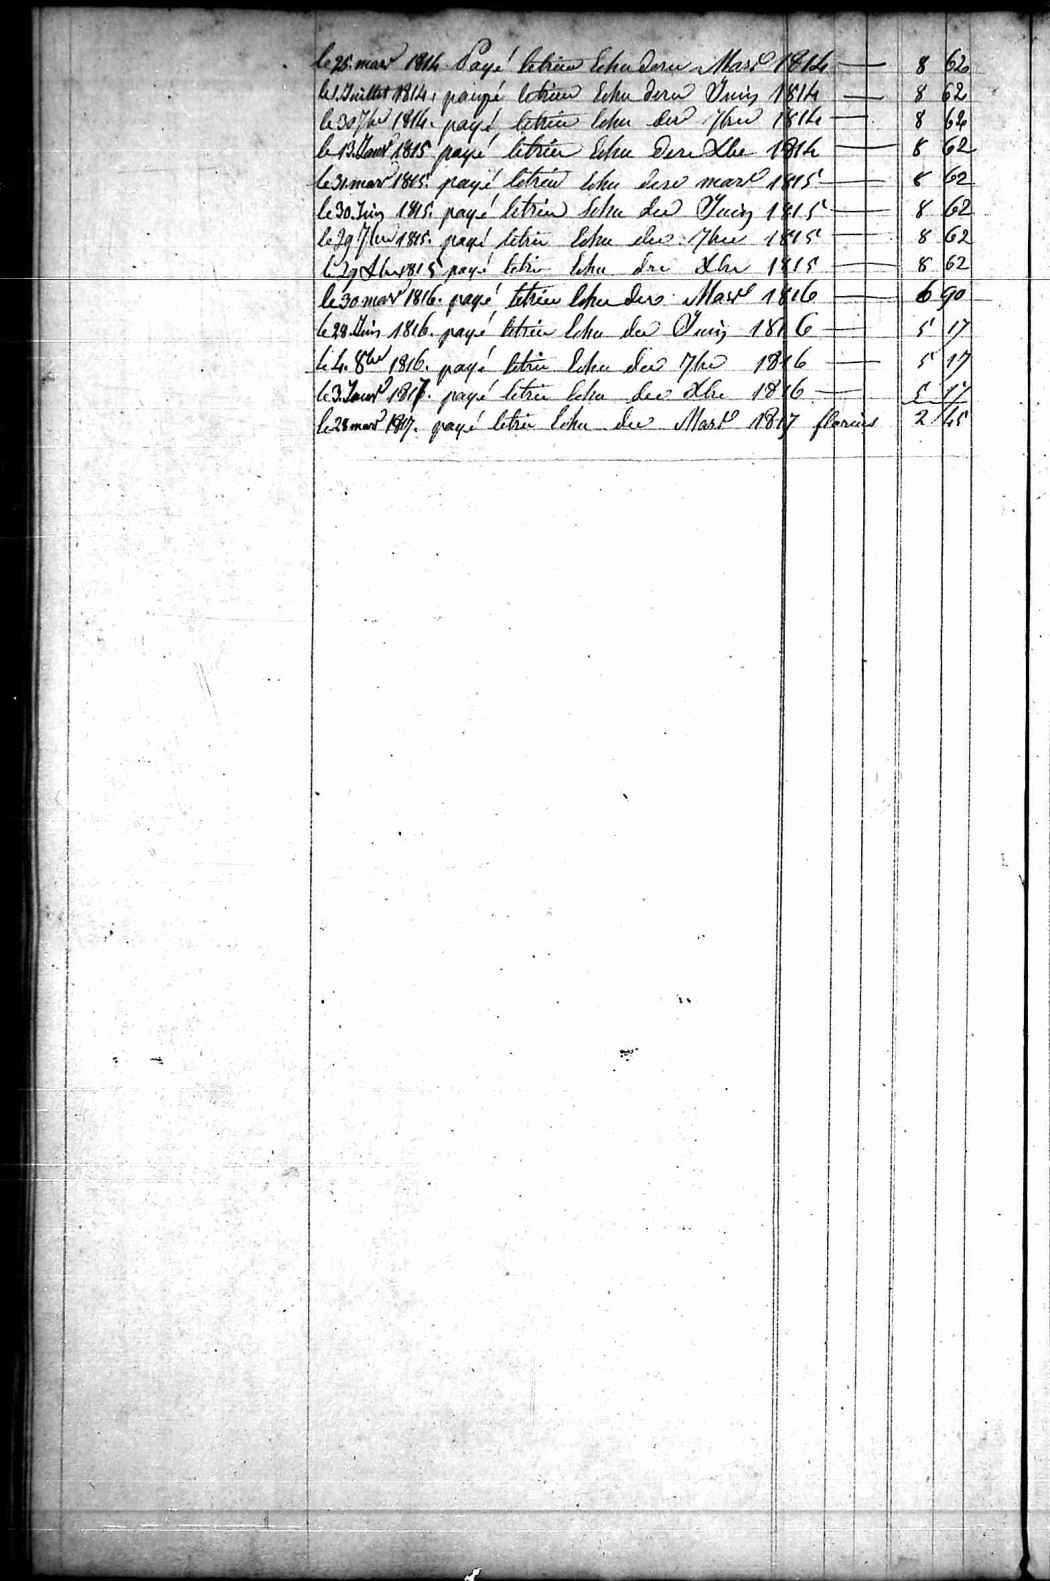 le 25. mars 1814 Payé letrim Echu dern Mars 1814 — 8 62
le 1 Juillet 1814, payé letrim Echu dern Juin 1814 — 8 62
le 30 7bre 1814. payé letrim Echu der 7bre 1814 — 8 62
le 13. Janv 1815 payé letrim Echu dern Xbre 1814 — 8 62
le 31. mars 1815. payé letrim Echu dern mars 1815 — 8 62
le 30. Juin 1815. payé letrim Echu der Juin 1815 — 8 62
le 29 7bre 1815. payé letrim Echu der 7bre 1815 — 8 62
le 29 Xbre 1815 payé letrim Echu der Xbre 1815 — 8 62
le 30 mars 1816. payé letrim Echu der Mars 1816 — 6 90
le 28 Juin 1816. payé letrim Echu der Juin 1816 — 5 17
le 4. 8bre 1816. payé letrim Echu der 7bre 1816 — 5 17
le 3. Janvr 1817. payé letrim Echu der Xbre 1816 — 5 17
le 28 mars 1817. payé letrim Echu der Mars 1817 florins 2 45